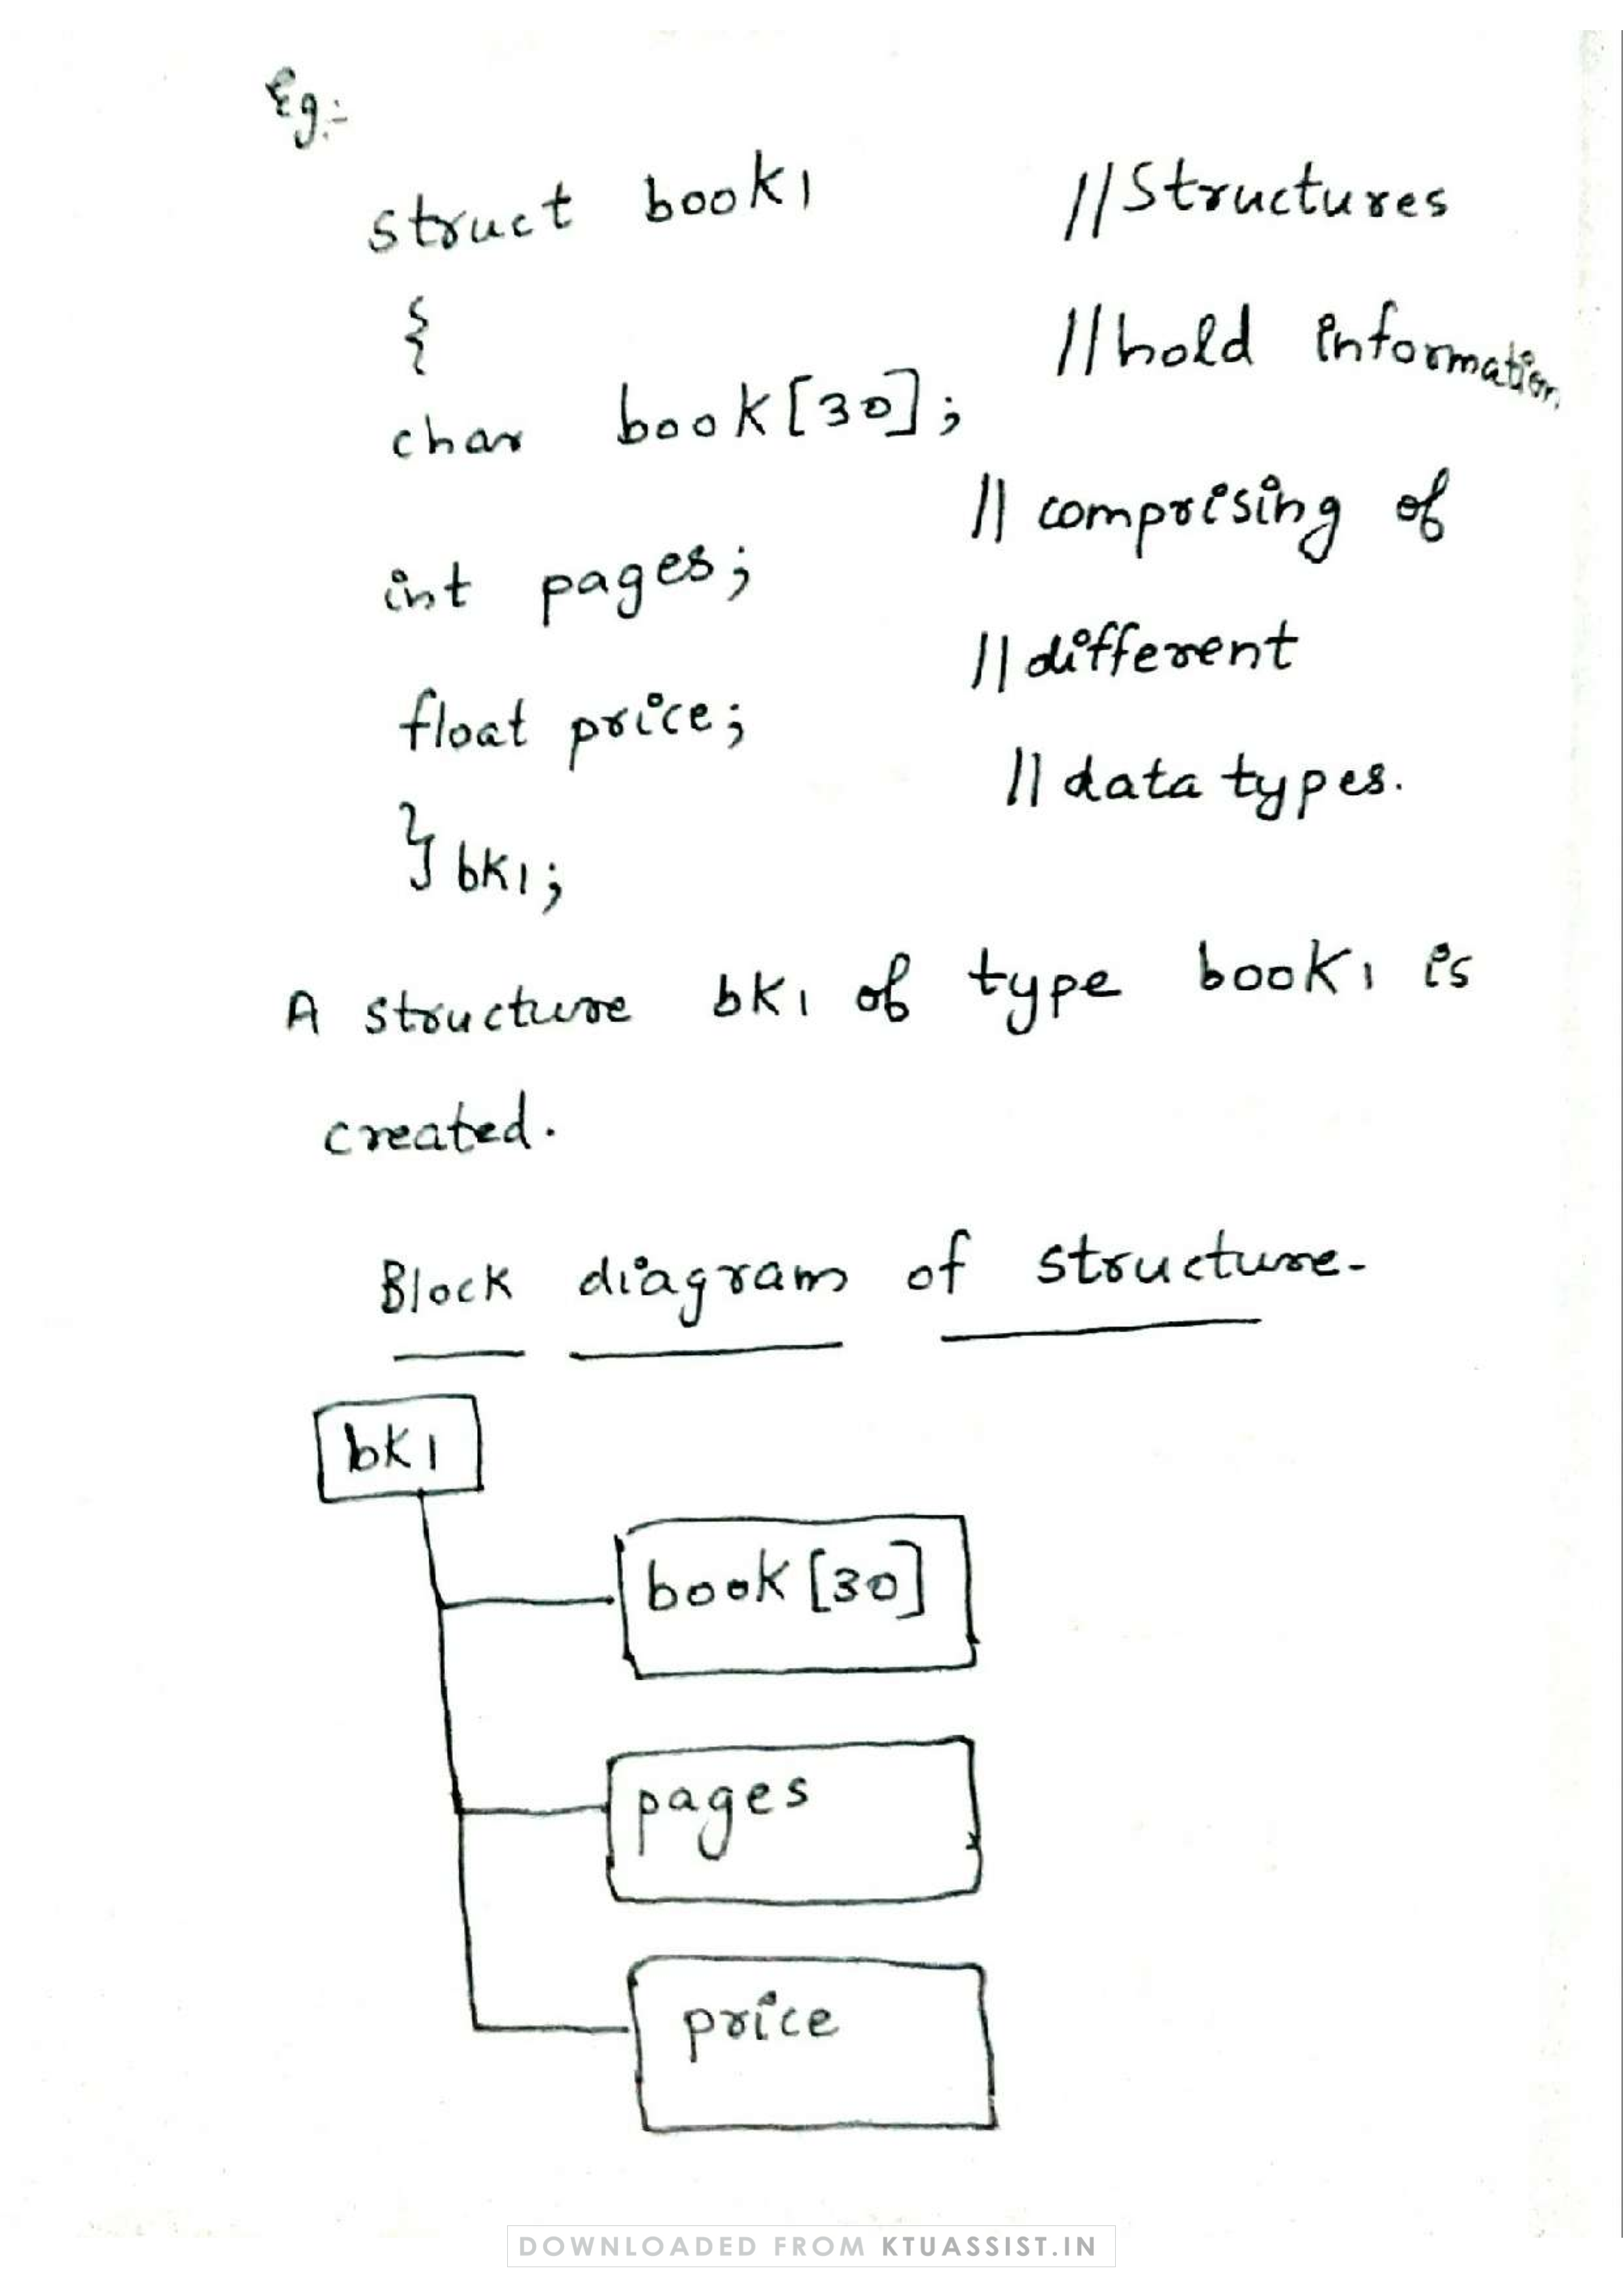 Eg:-
struct book1 //Structures
{ //hold information
char book[30];
// comprising of
int pages;
// different
float price;
// data types.
} bk1;
A structure bk1 of type book1 is
created.
Block diagram of structure-
bk1
book[30]
pages
price
DOWNLOADED FROM KTUASSIST.IN